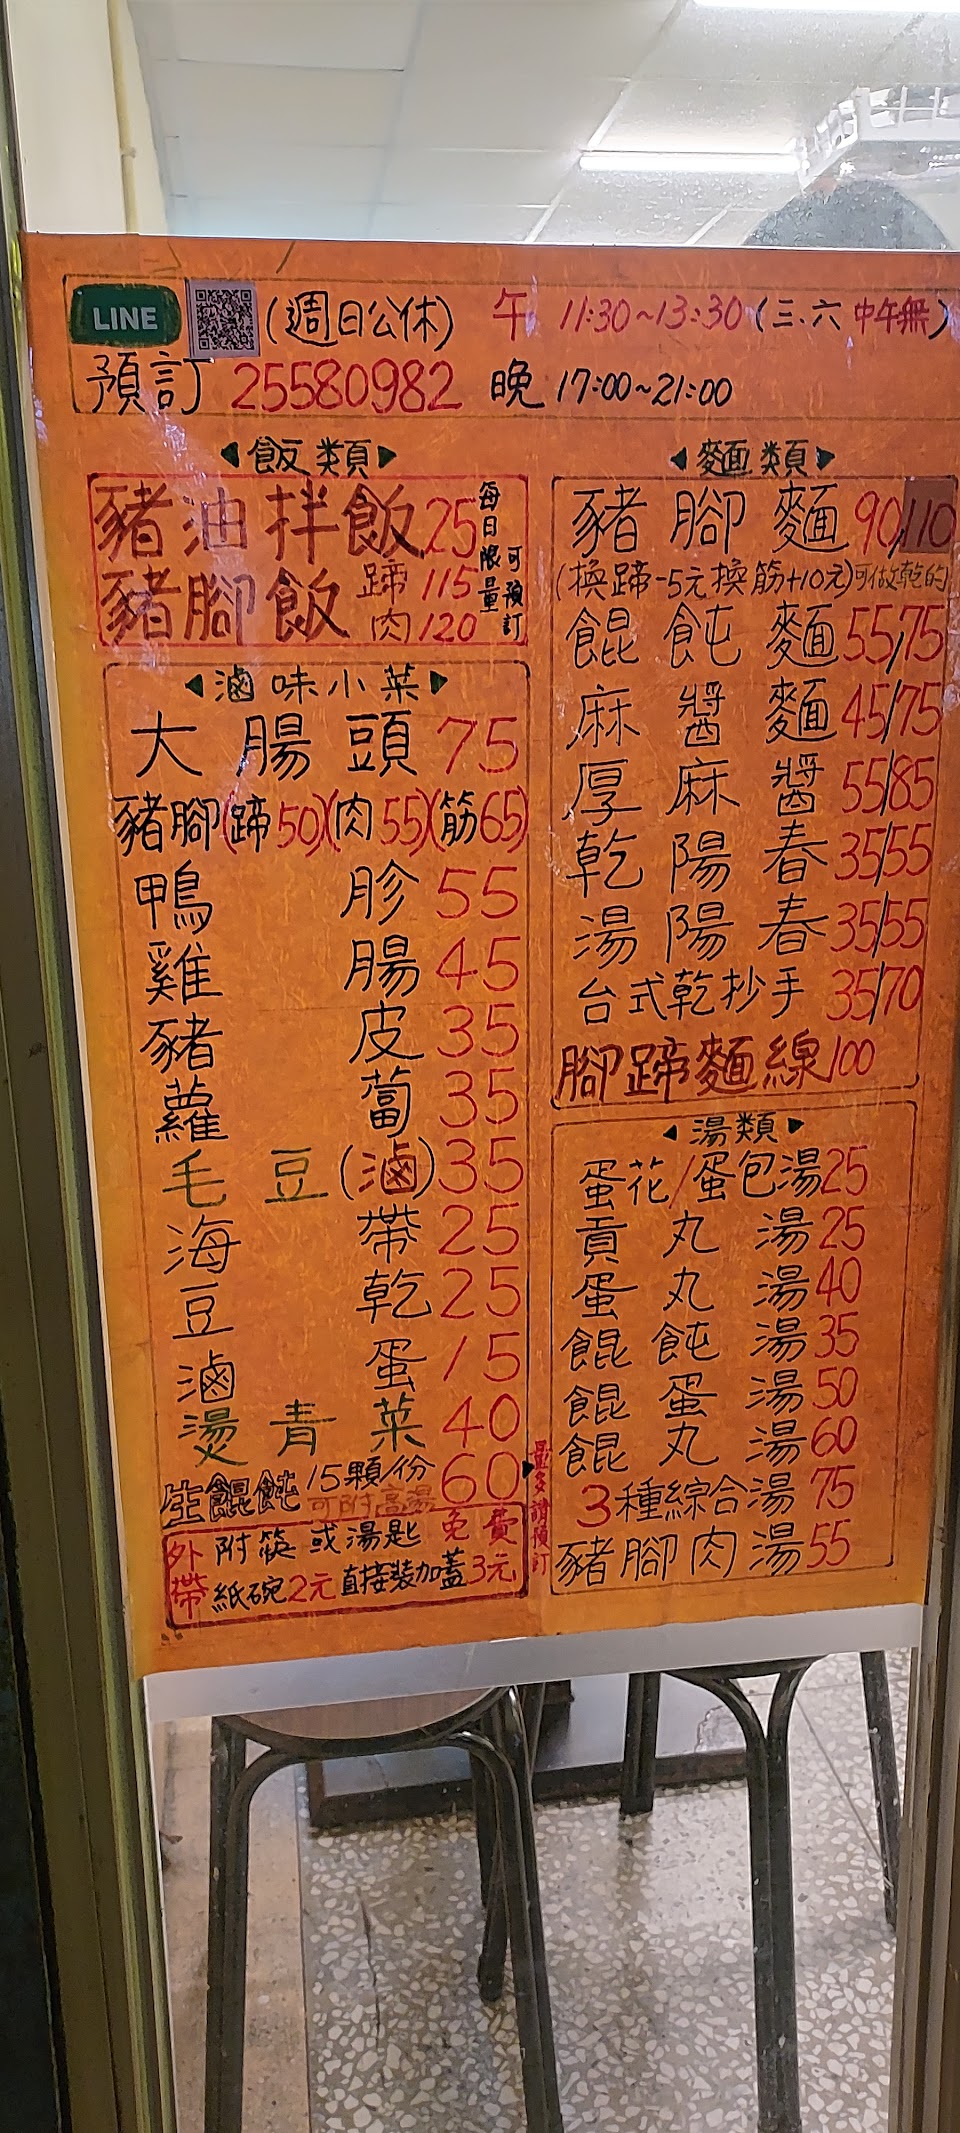 LINE (週日公休) 午 11:30~13:30 (三、六 中午無)
預訂 25580982 晚 17:00~21:00
飯類
豬油拌飯 25
豬腳飯 蹄 115
肉 120
每日限量
可預訂
滷味小菜
大腸頭 75
豬腳(蹄50)(肉55)(筋65)
鴨胗 55
雞腸 45
豬皮 35
蘿蔔 35
毛豆(滷) 35
海帶 25
豆乾 25
滷蛋 15
燙青菜 40
生餛飩 15顆/份 60
可附高湯
量多請預訂
外帶 附筷或湯匙 免費
紙碗2元 直接裝加蓋3元
麵類
豬腳麵 90/110
(換蹄-5元換筋+10元)可做乾的
餛飩麵 55/75
麻醬麵 45/75
厚麻醬 55/85
乾陽春 35/55
湯陽春 35/55
台式乾抄手 35/70
腳蹄麵線 100
湯類
蛋花/蛋包湯 25
貢丸湯 25
蛋丸湯 40
餛飩湯 35
餛蛋湯 50
餛丸湯 60
3種綜合湯 75
豬腳肉湯 55